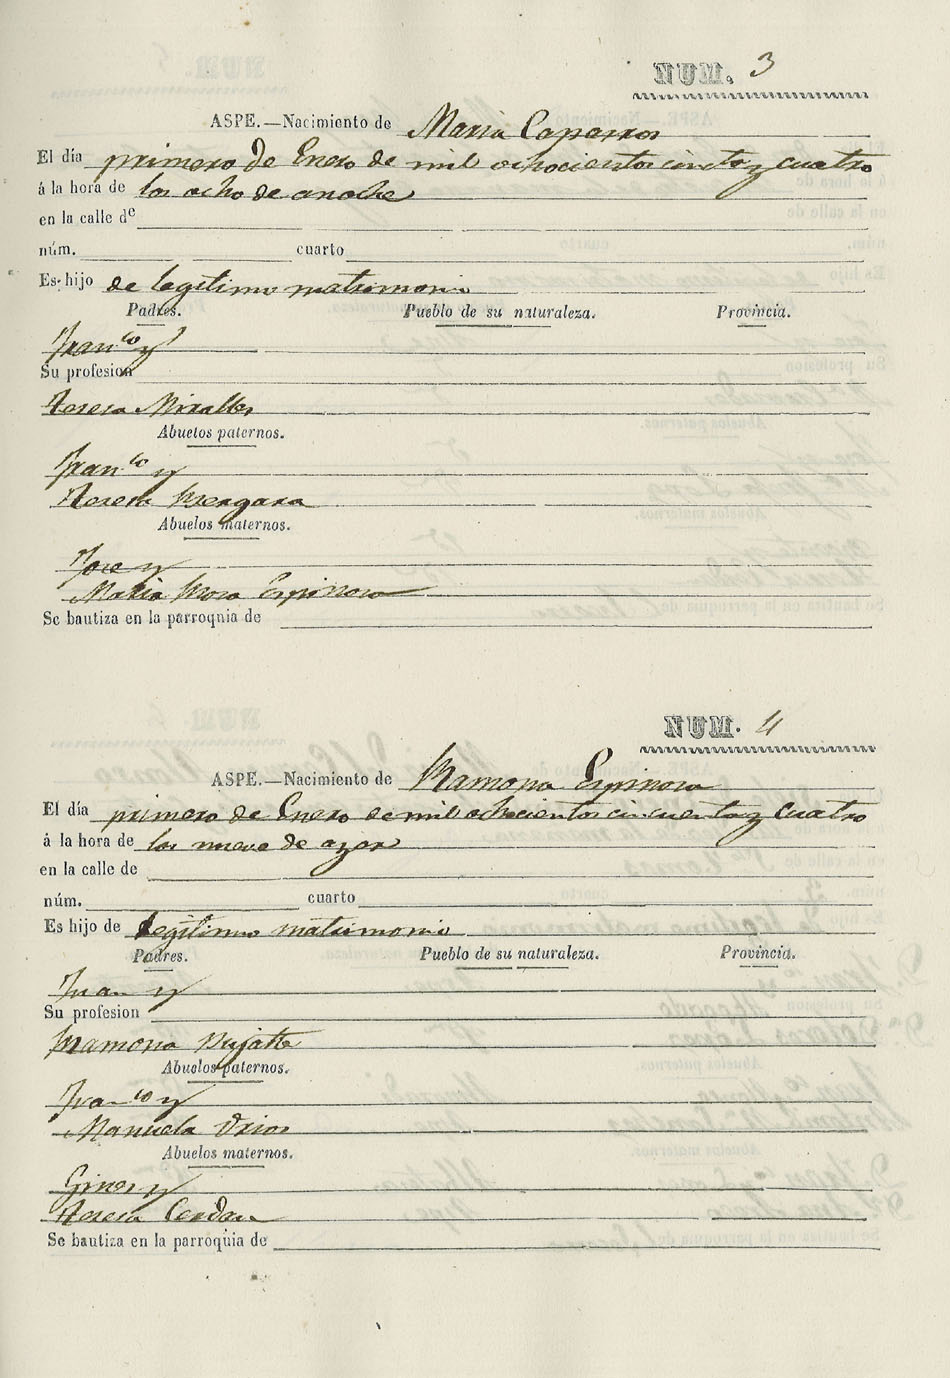 NUM. 3
ASPE.—Nacimiento de Maria Caparros
El día primero de Enero de mil ochocientos cincta y cuatro
á la hora de las ocho de anoche
en la calle de
núm. cuarto
Es hijo de legitimo matrimonio
Padres. Pueblo de su naturaleza. Provincia.
Franco y
Su profesion
Teresa Miralles
Abuelos paternos.
Franco y
Teresa Vergara
Abuelos maternos.
Jose y
Maria Rosa Espinosa
Se bautiza en la parroquia de
NUM. 4
ASPE.—Nacimiento de Ramona Espinosa
El día primero de Enero de mil ochocientos cincuenta y cuatro
á la hora de las nueve de ayer
en la calle de
núm. cuarto
Es hijo de legitimo matrimonio
Padres. Pueblo de su naturaleza. Provincia.
Juan y
Su profesion
Ramona
Abuelos paternos.
Franco y
Manuela Urios
Abuelos maternos.
Gines y
Teresa Cerdan
Se bautiza en la parroquia de